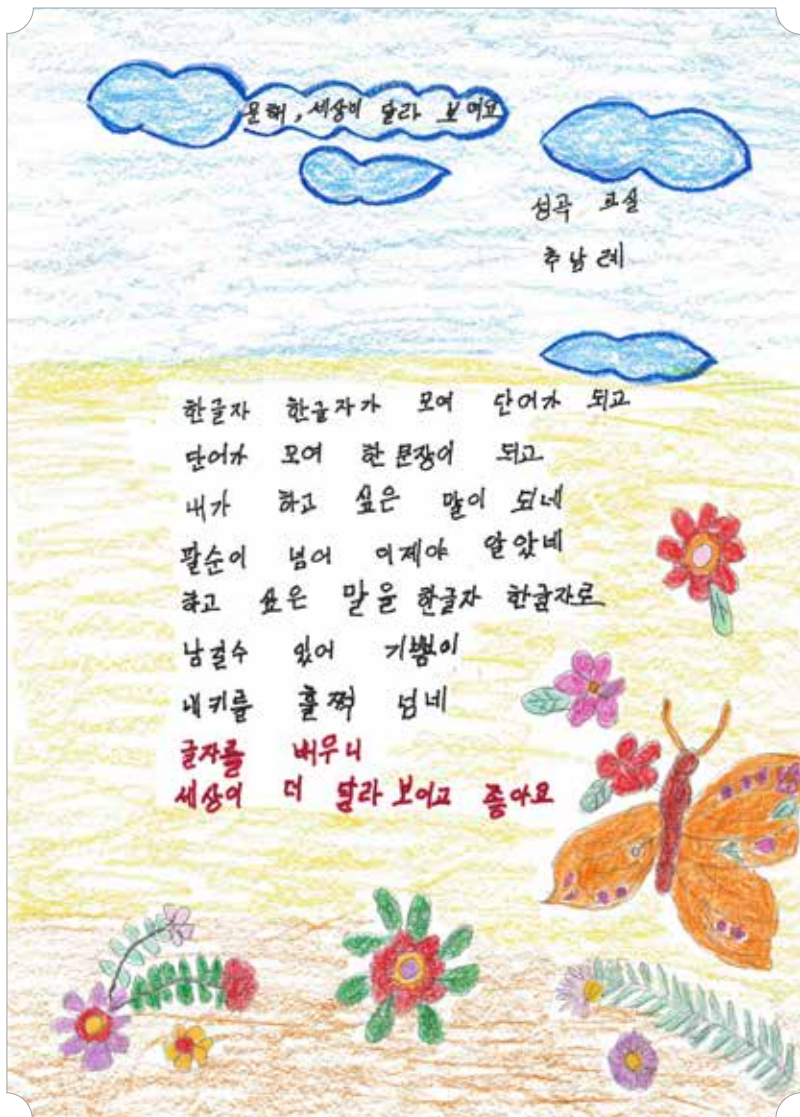 문해, 세상이 달라 보여요
성곡 교실
추남례
한글자 한글자가 모여 단어가 되고
단어가 모여 한 문장이 되고
내가 하고 싶은 말이 되네
팔순이 넘어 이제야 알았네
하고 싶은 말을 한글자 한글자로
남길수 있어 기쁨이
내키를 훌쩍 넘네
글자를 배우니
세상이 더 달라 보이고 좋아요